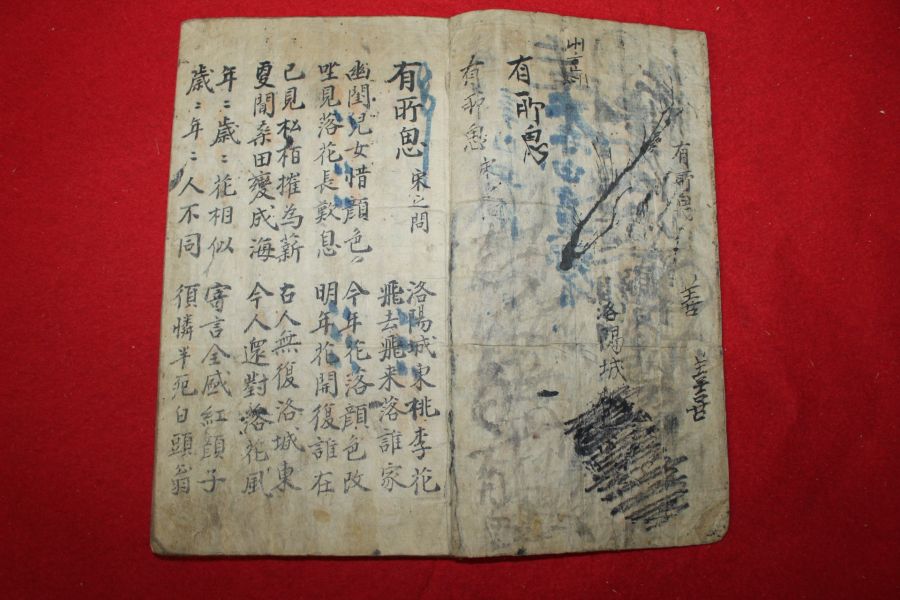 有所思
善
洛陽城
有所思
有所思 宋之問
有所思 宋之問
洛陽城東桃李花
飛去飛来落誰家
幽閨兒女惜顔色
坐見落花長歎息
今年花落顔色改
明年花開復誰在
已見松栢摧為薪
更聞桑田變成海
古人無復洛城東
今人還對落花風
年〻歲〻花相似
歲〻年〻人不同
寄言全盛紅顔子
須憐半死白頭翁